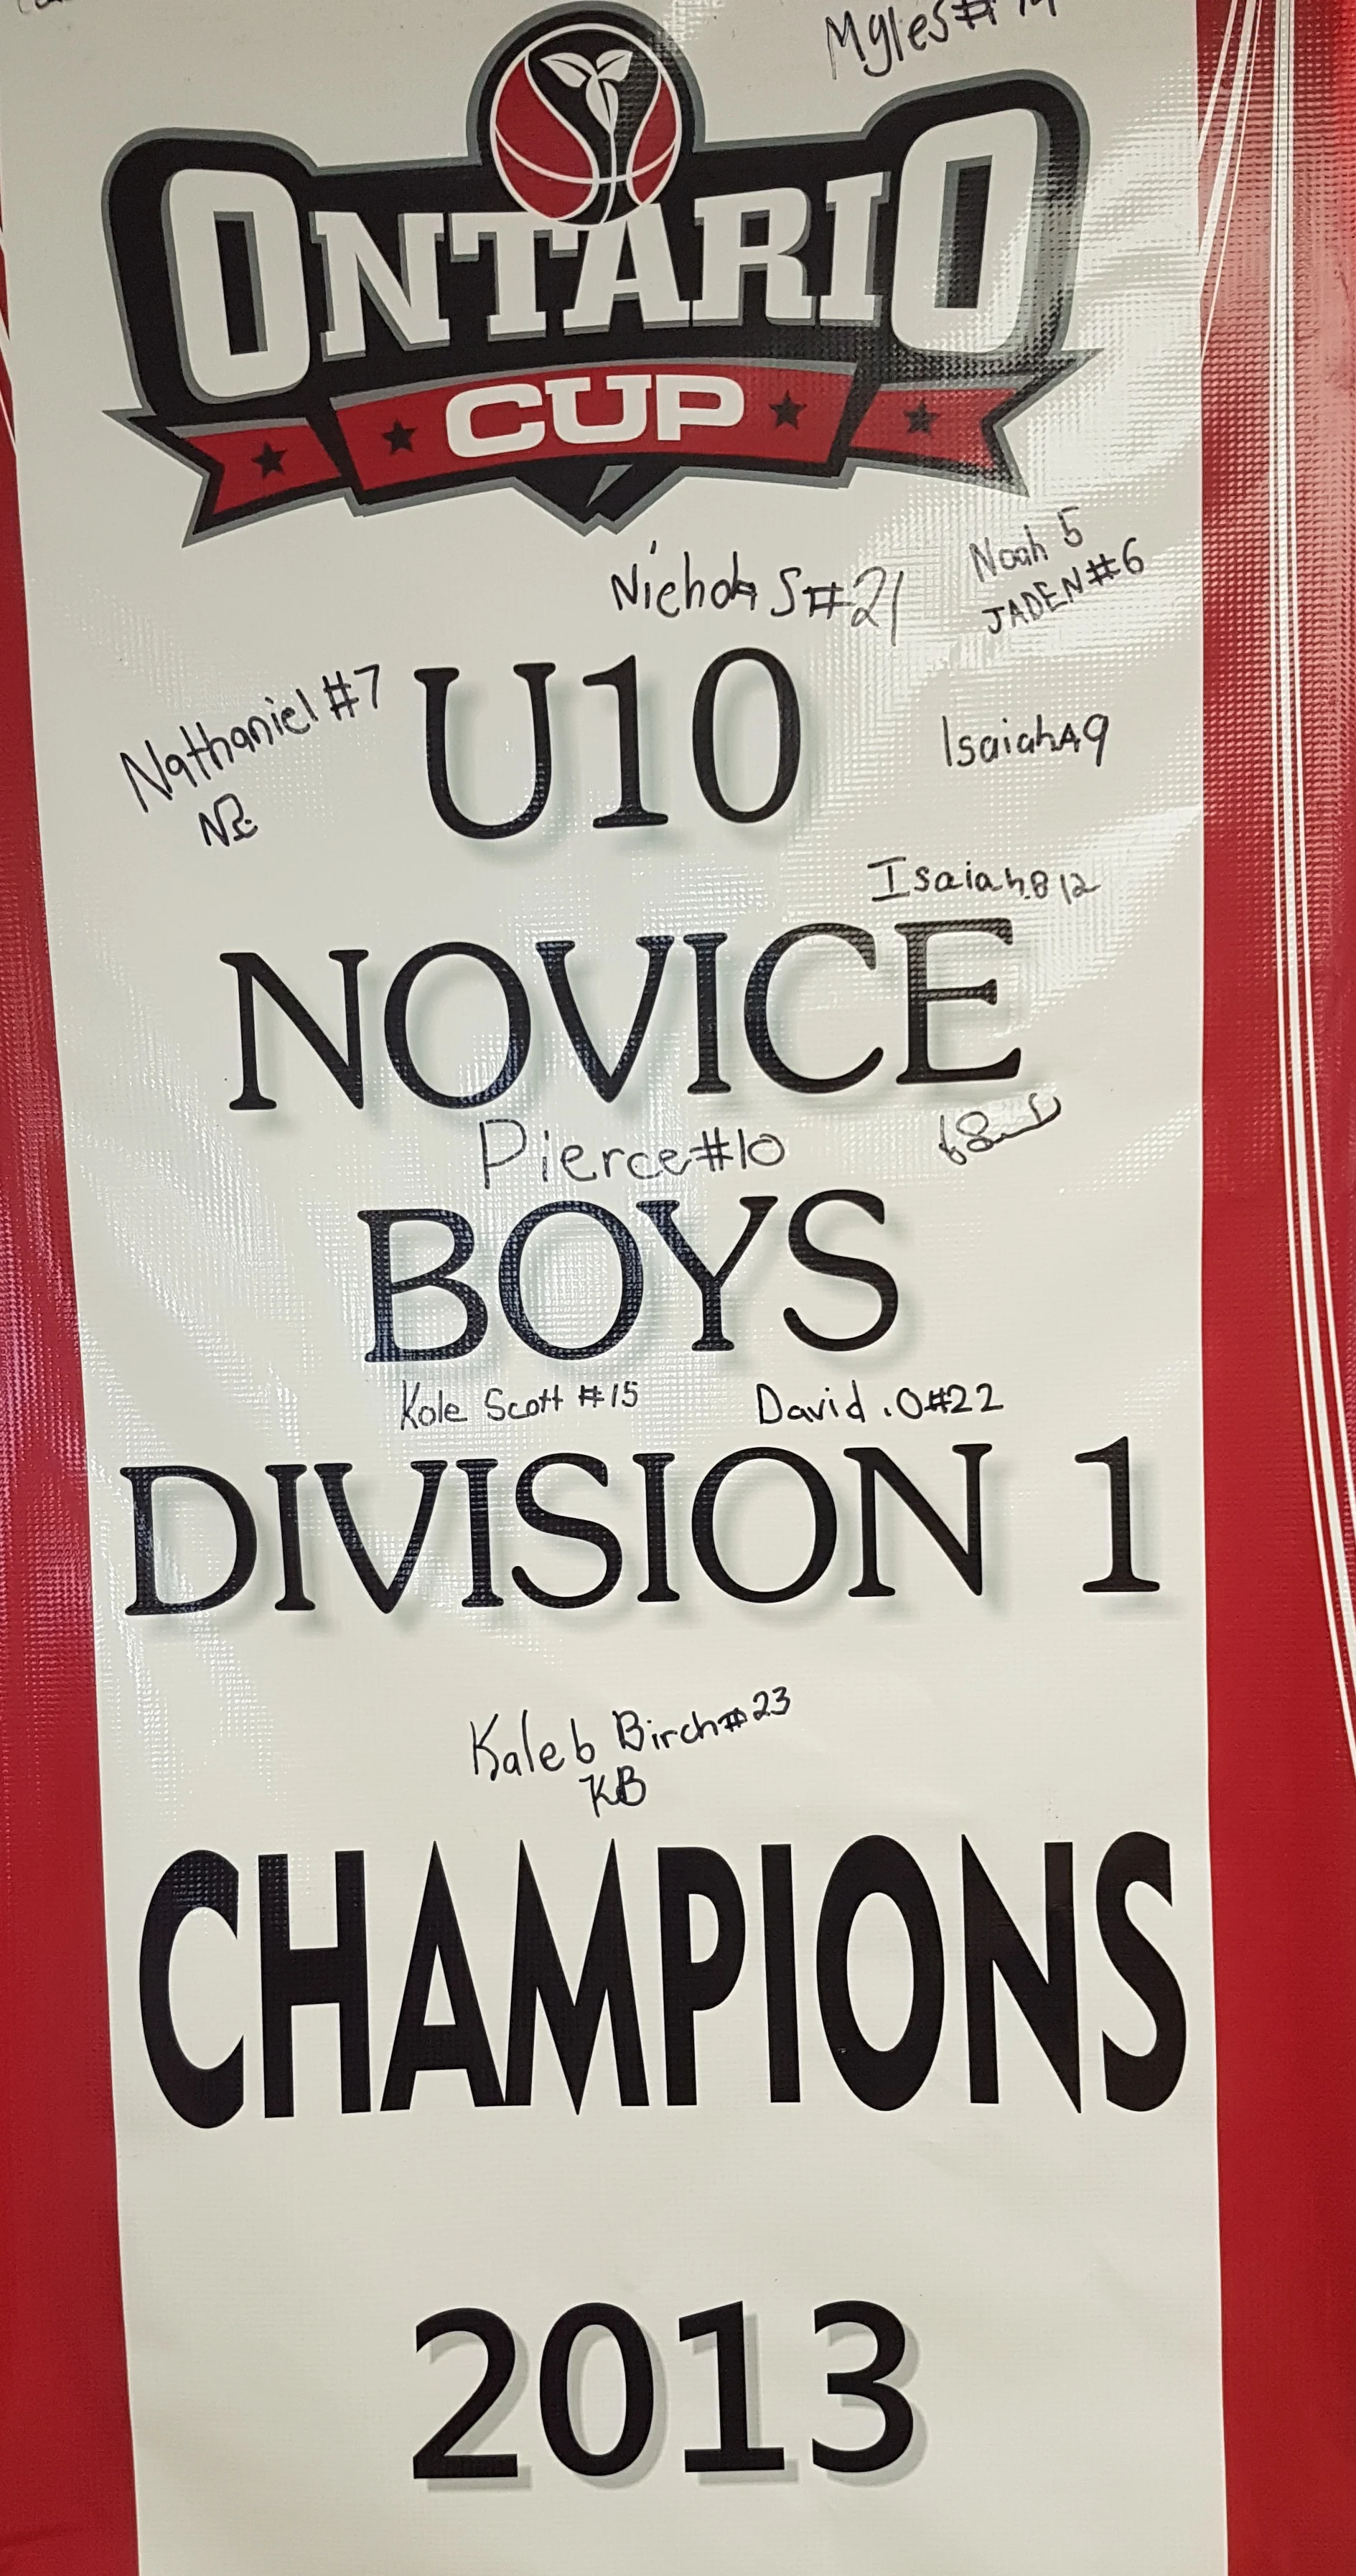 Myles #14
ONTARIO
CUP
Nicholas #21
Noah 5
JADEN #6
Nathaniel #7
U10
Isaiah A 9
Isaiah.B 12
NOVICE
Pierce #10
BOYS
Kole Scott #15
David .O #22
DIVISION 1
Kaleb Birch #23
KB
CHAMPIONS
2013